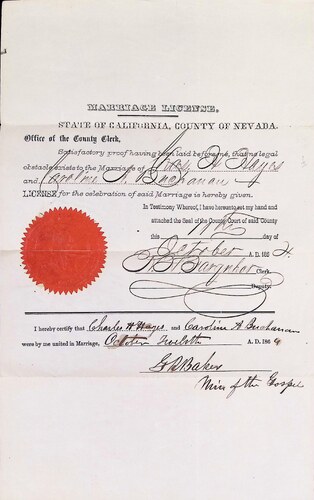 MARRIAGE LICENSE.
STATE OF CALIFORNIA, COUNTY OF NEVADA.
Office of the County Clerk,
Satisfactory proof having been laid before me, that no legal
obstacle exists to the Marriage of Chas. H. Hayes
and Caroline A. Buchanan
LICENSE for the celebration of said Marriage is hereby given.
In Testimony Whereof, I have hereunto set my hand and
attached the Seal of the County Court of said County
this day of
October A.D. 1864.
Clerk.
Deputy.
I hereby certify that Charles H Hayes and Caroline A Buchanan
were by me united in Marriage, October Twelvth A. D. 1864
Baker
Min of the Gospel